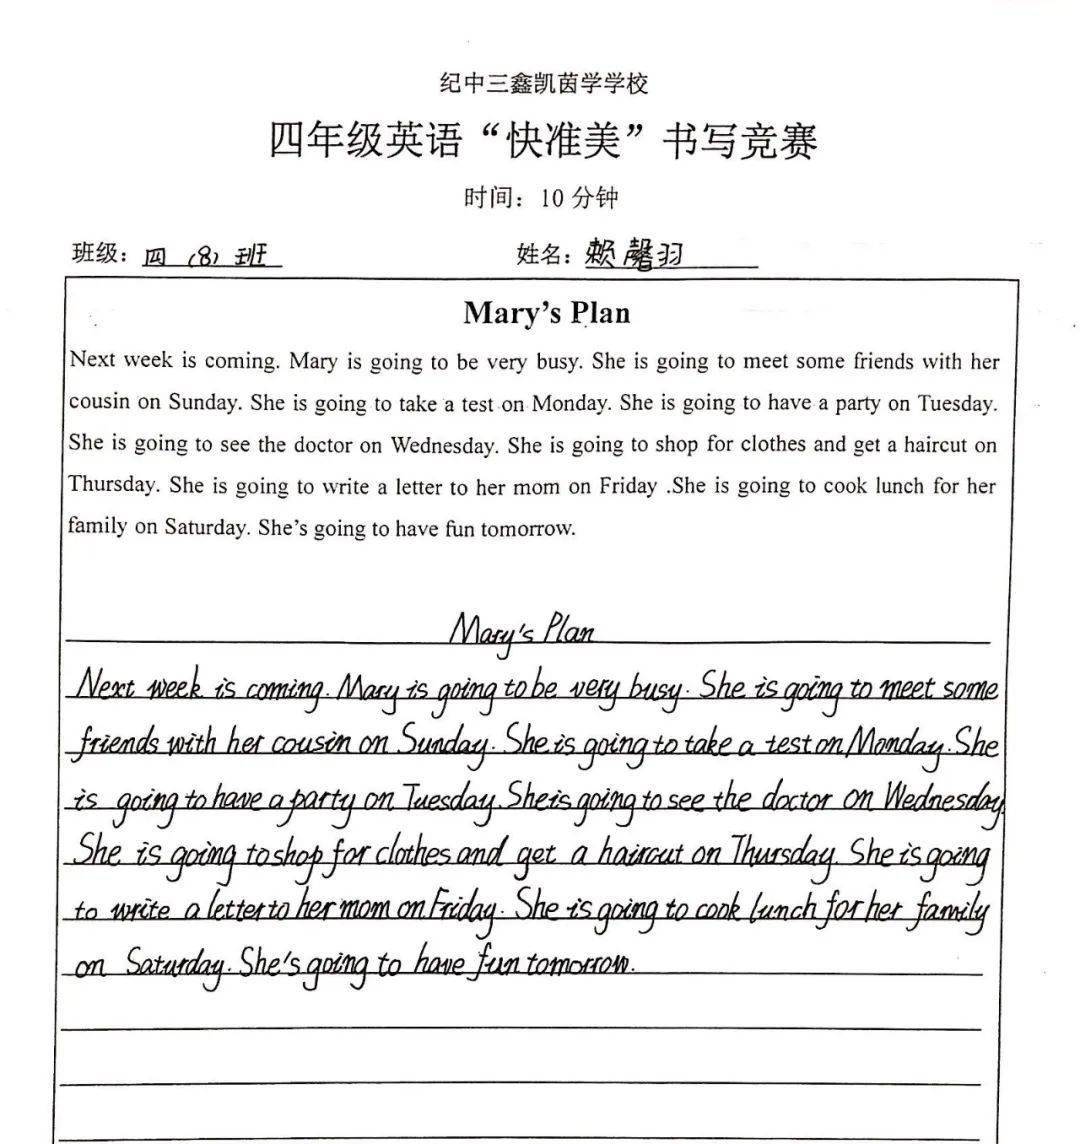 纪中三鑫凯茵学学校
四年级英语“快准美”书写竞赛
时间：10 分钟
班级：四（8）班 姓名：赖馨羽
Mary’s Plan
Next week is coming. Mary is going to be very busy. She is going to meet some friends with her
cousin on Sunday. She is going to take a test on Monday. She is going to have a party on Tuesday.
She is going to see the doctor on Wednesday. She is going to shop for clothes and get a haircut on
Thursday. She is going to write a letter to her mom on Friday .She is going to cook lunch for her
family on Saturday. She’s going to have fun tomorrow.
Mary's Plan
Next week is coming. Mary is going to be very busy. She is going to meet some
friends with her cousin on Sunday. She is going to take a test on Monday. She
is going to have a party on Tuesday. She is going to see the doctor on Wednesday.
She is going to shop for clothes and get a haircut on Thursday. She is going
to write a letter to her mom on Friday. She is going to cook lunch for her family
on Saturday. She's going to have fun tomorrow.